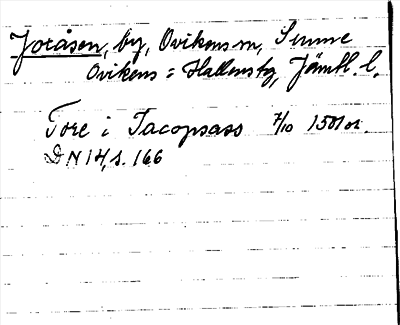 Joråsen, by, Ovikens sn, Sunne
Ovikens = Hallens tg, Jämtl. l.
Tore i Jacopsass 7/10 1501 or.
DN 14, s. 166